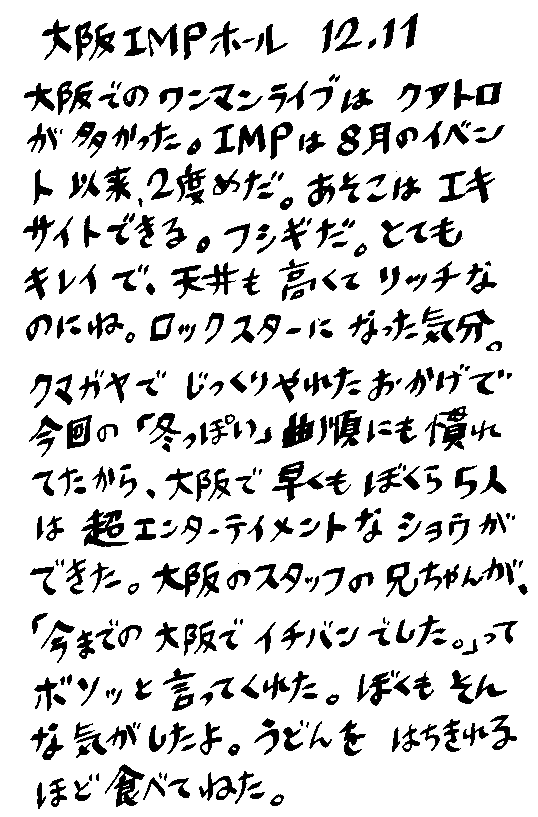 大阪IMPホール 12.11
大阪でのワンマンライブは クアトロ
が多かった。IMPは8月のイベン
ト以来、2度めだ。あそこは エキ
サイトできる。フシギだ。とても
キレイで、天井も高くて リッチな
のにね。ロックスターに なった気分。
クマガヤで じっくりやれたおかげで
今回の「冬っぽい」曲順にも慣れ
てたから、大阪で早くも ぼくら5人
は 超エンターテイメントな ショウが
できた。大阪のスタッフの兄ちゃんが、
「今までの大阪で イチバンでした。」って
ボソッと言ってくれた。ぼくも そん
な気がしたよ。うどんを はちきれる
ほど食べてねた。